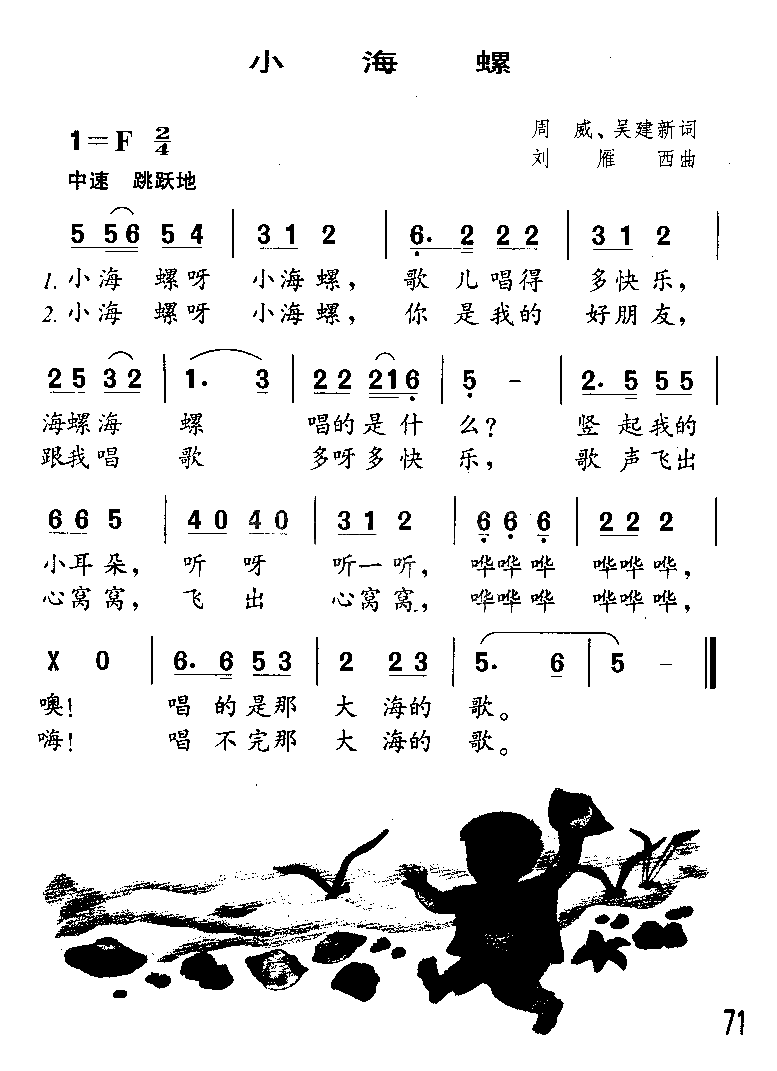 小海螺
周威、吴建新词
1=F 2/4
刘雁西曲
中速 跳跃地
5 56 5 4 | 3 1 2 | 6. 2 2 2 2 | 3 1 2 |
1. 小海 螺呀 小海螺， 歌儿唱得 多快乐，
2. 小海 螺呀 小海螺， 你是我的 好朋友，
2 5 3 2 | 1. 3 | 2 2 2 1 6 | 5 - | 2. 5 5 5 |
海螺海 螺 唱的是什 么？ 竖起我的
跟我唱 歌 多呀多快 乐， 歌声飞出
6 6 5 | 4 0 4 0 | 3 1 2 | 6 6 6 | 2 2 2 |
小耳朵， 听呀 听一听， 哗哗哗 哗哗哗，
心窝窝， 飞出 心窝窝， 哗哗哗 哗哗哗，
X 0 | 6. 6 5 3 | 2 2 3 | 5. 6 | 5 - ‖
噢！ 唱的是那 大海的 歌。
嗨！ 唱不完那 大海的 歌。
71